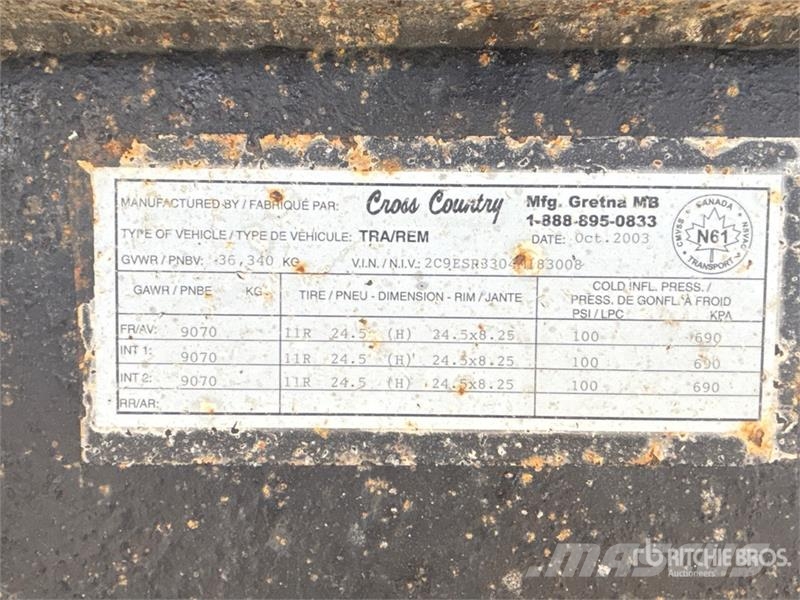 MANUFACTURED BY / FABRIQUÉ PAR: Cross Country Mfg. Gretna MB
1-888-895-0833
TYPE OF VEHICLE / TYPE DE VÉHICULE: TRA/REM DATE: Oct.2003
GVWR / PNBV: 36,340 KG V.I.N. / N.I.V.:
CANADA
CMVSS N61 NSVAC
TRANSPORT
GAWR / PNBE KG TIRE / PNEU - DIMENSION - RIM / JANTE COLD INFL. PRESS. /
PRESS. DE GONFL. À FROID
PSI / LPC KPA
FR/AV: 9070 11R 24.5 (H) 24.5x8.25 100 690
INT 1: 9070 11R 24.5 (H) 24.5x8.25 100 690
INT 2: 9070 11R 24.5 (H) 24.5x8.25 100 690
RR/AR:
MASCUS
rb RITCHIE BROS.
Auctioneers